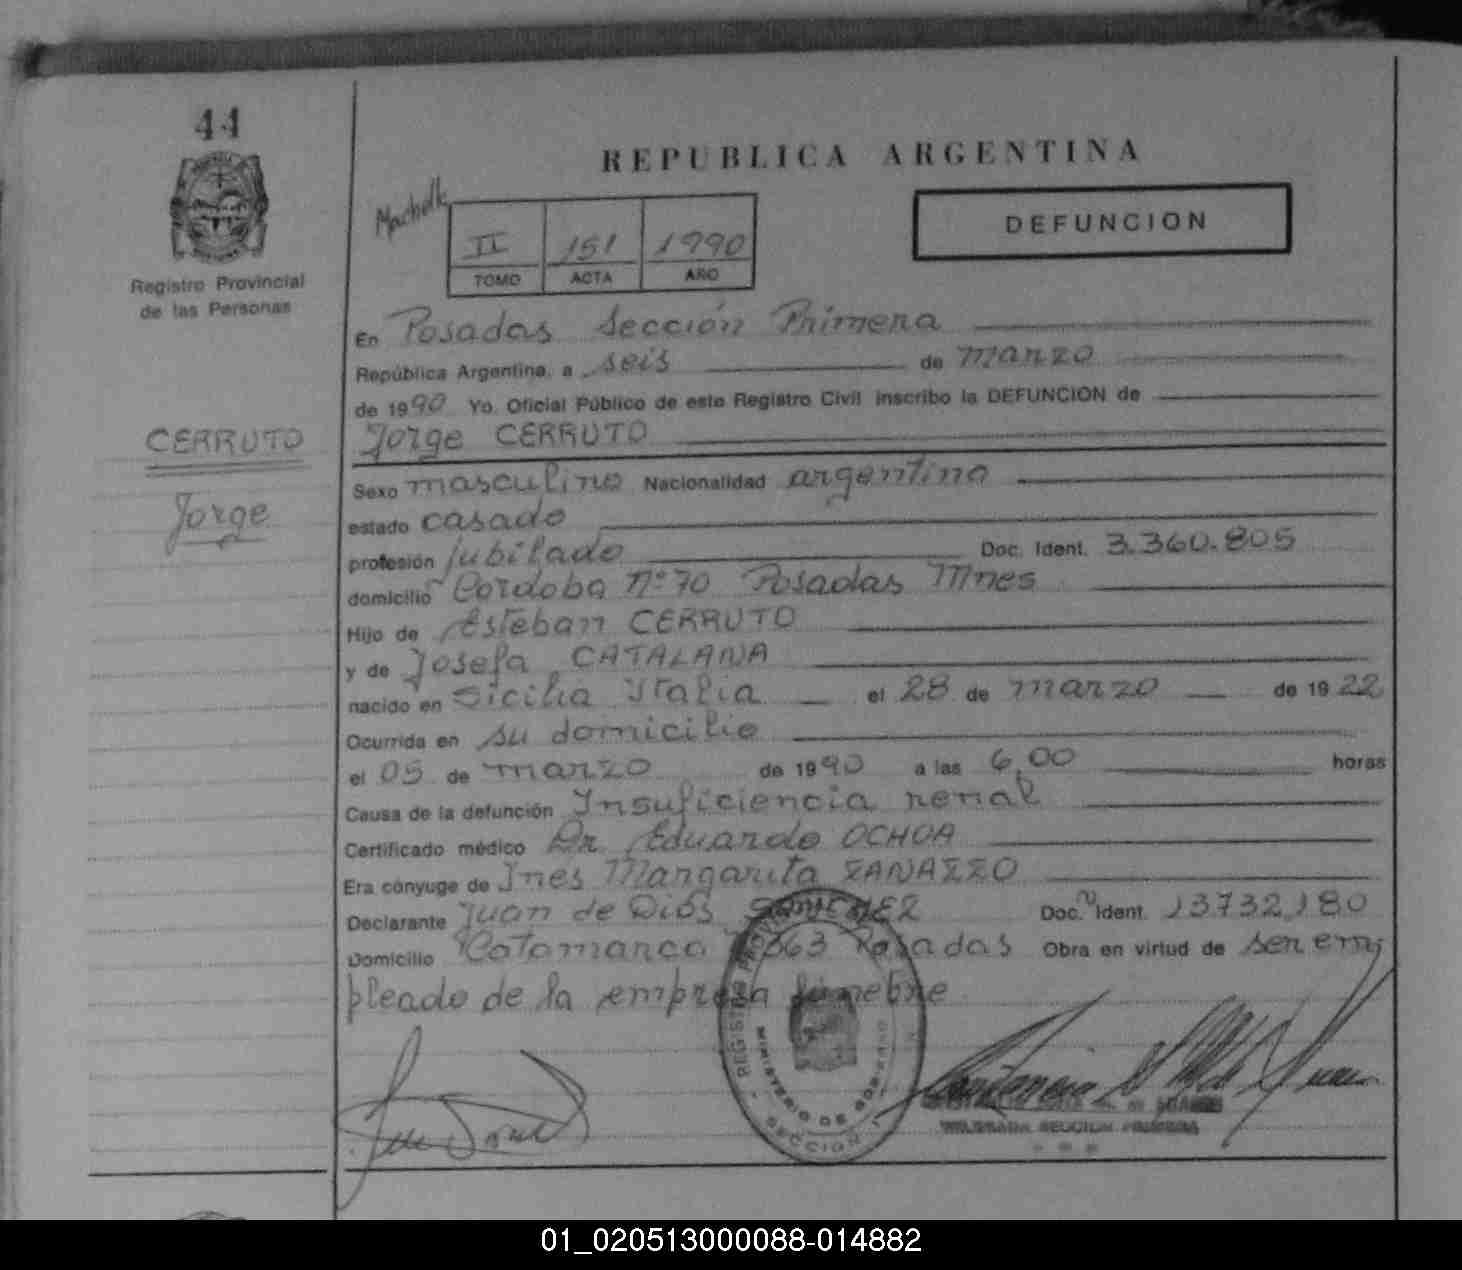 44
Registro Provincial
de las Personas
CERRUTO
Jorge
REPUBLICA ARGENTINA
II 151 1990
TOMO ACTA AÑO
DEFUNCION
En Posadas Sección Primera
República Argentina, a seis de marzo
de 1990 Yo, Oficial Público de este Registro Civil inscribo la DEFUNCION de
Jorge CERRUTO
Sexo masculino Nacionalidad argentina
estado casado
profesión jubilado Doc. Ident. 3.360.805
domicilio Cordoba Nº 70 Posadas Mnes
Hijo de Esteban CERRUTO
y de Josefa CATALANA
nacido en Sicilia Italia el 28 de marzo de 1922
Ocurrida en su domicilio
el 05 de marzo de 1990 a las 6,00 horas
Causa de la defunción Insuficiencia renal
Certificado médico Dr. Eduardo OCHOA
Era cónyuge de Ines Margarita ZANAZZO
Declarante Juan de Dios SANCHEZ Doc. Ident. 13732180
Domicilio Catamarca 563 Posadas Obra en virtud de ser em
pleado de la empresa fúnebre
REGISTRO PROVINCIAL
MINISTERIO DE GOBIERNO
SECCION 1
SECCION PRIMERA
01_020513000088-014882